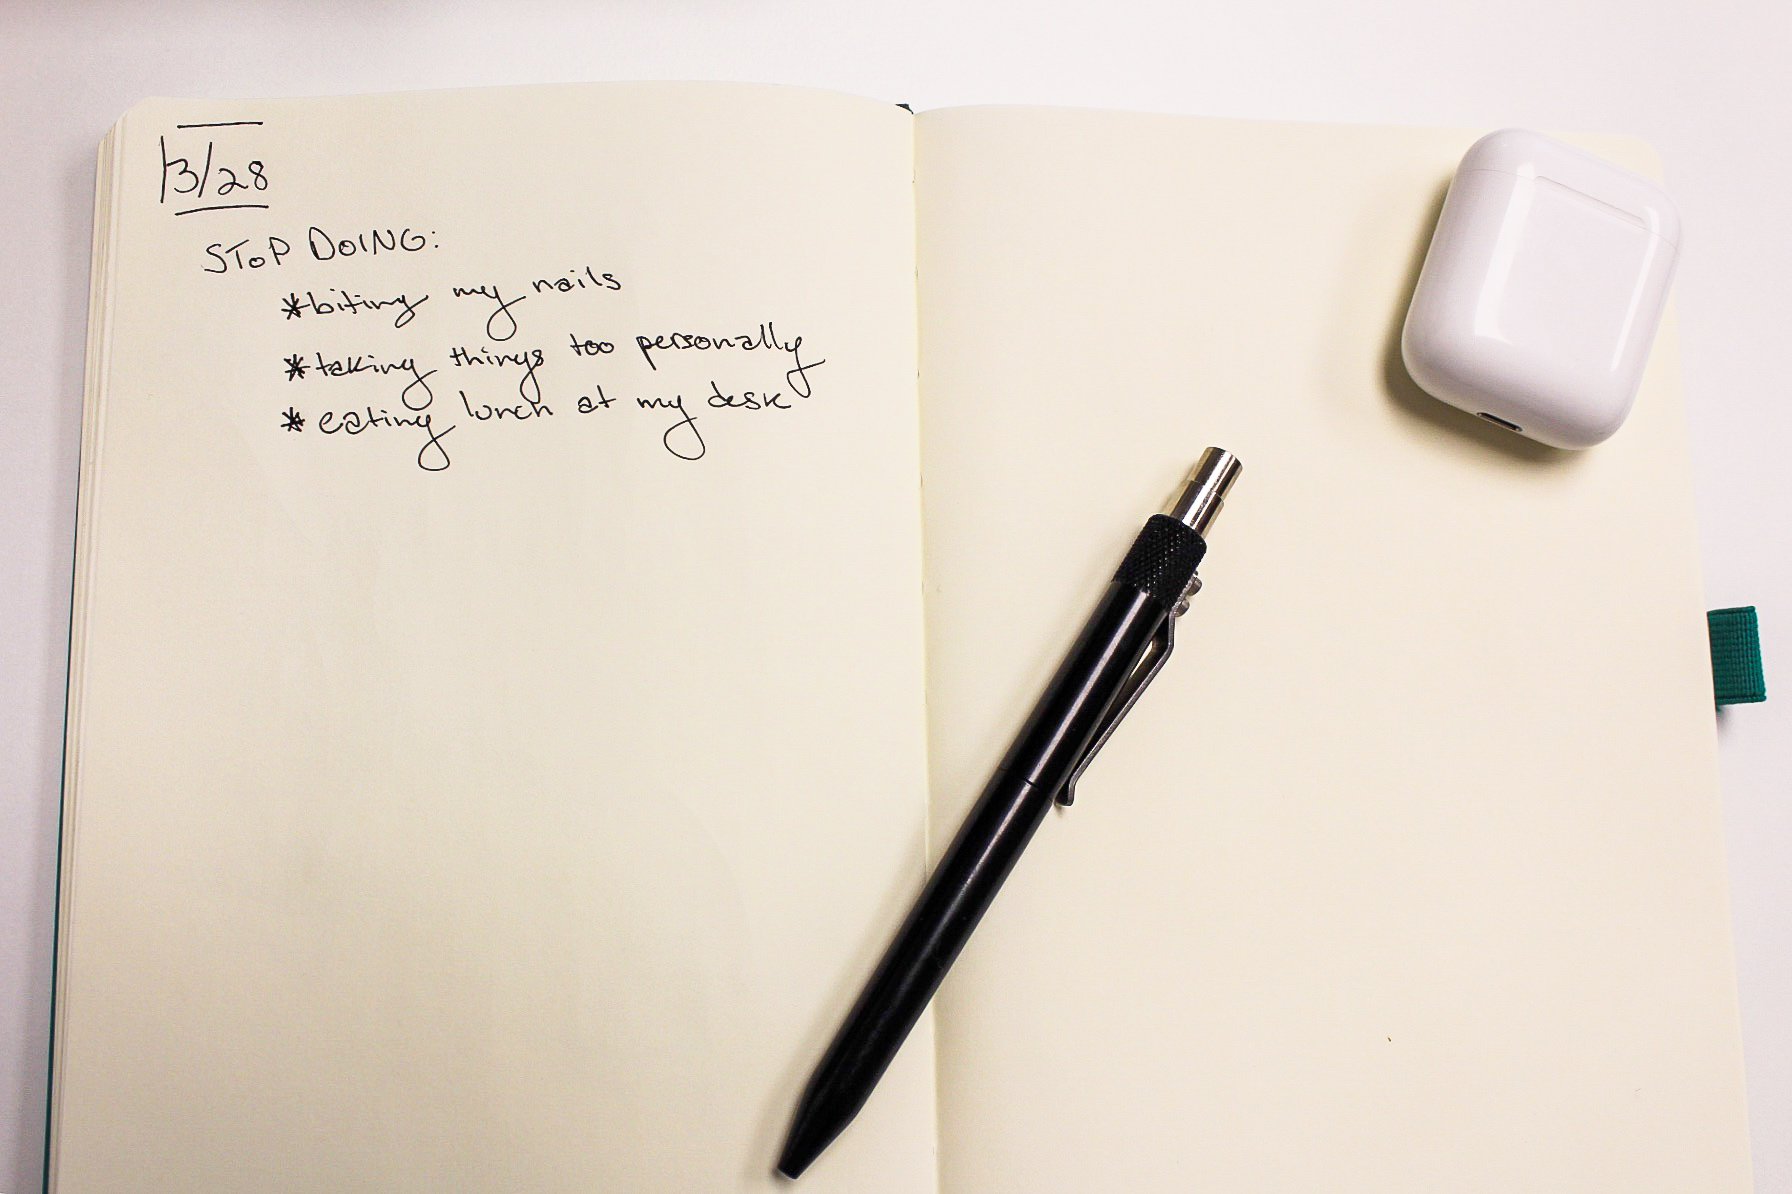 3/28
STOP DOING:
*biting my nails
*taking things too personally
*eating lunch at my desk